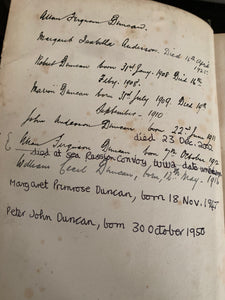 Allan Ferguson Duncan.
Margaret Isabella Anderson. Died 14th April
Robert Duncan born 31st Jany. 1908 Died 16th
Feby. 1908.
Marion Duncan born 31st July 1909. Died 14th
September - 1910
John Anderson Duncan, born 22nd June 1911
died 23 Dec. 2002
{ Allan Ferguson Duncan born 7th October 1912
died at Sea Russian Convoy, WW2 date unknown
William Cecil Duncan, born, 12th May - 1916
Margaret Primrose Duncan, born 18 Nov. 1945
Peter John Duncan, born 30 October 1950